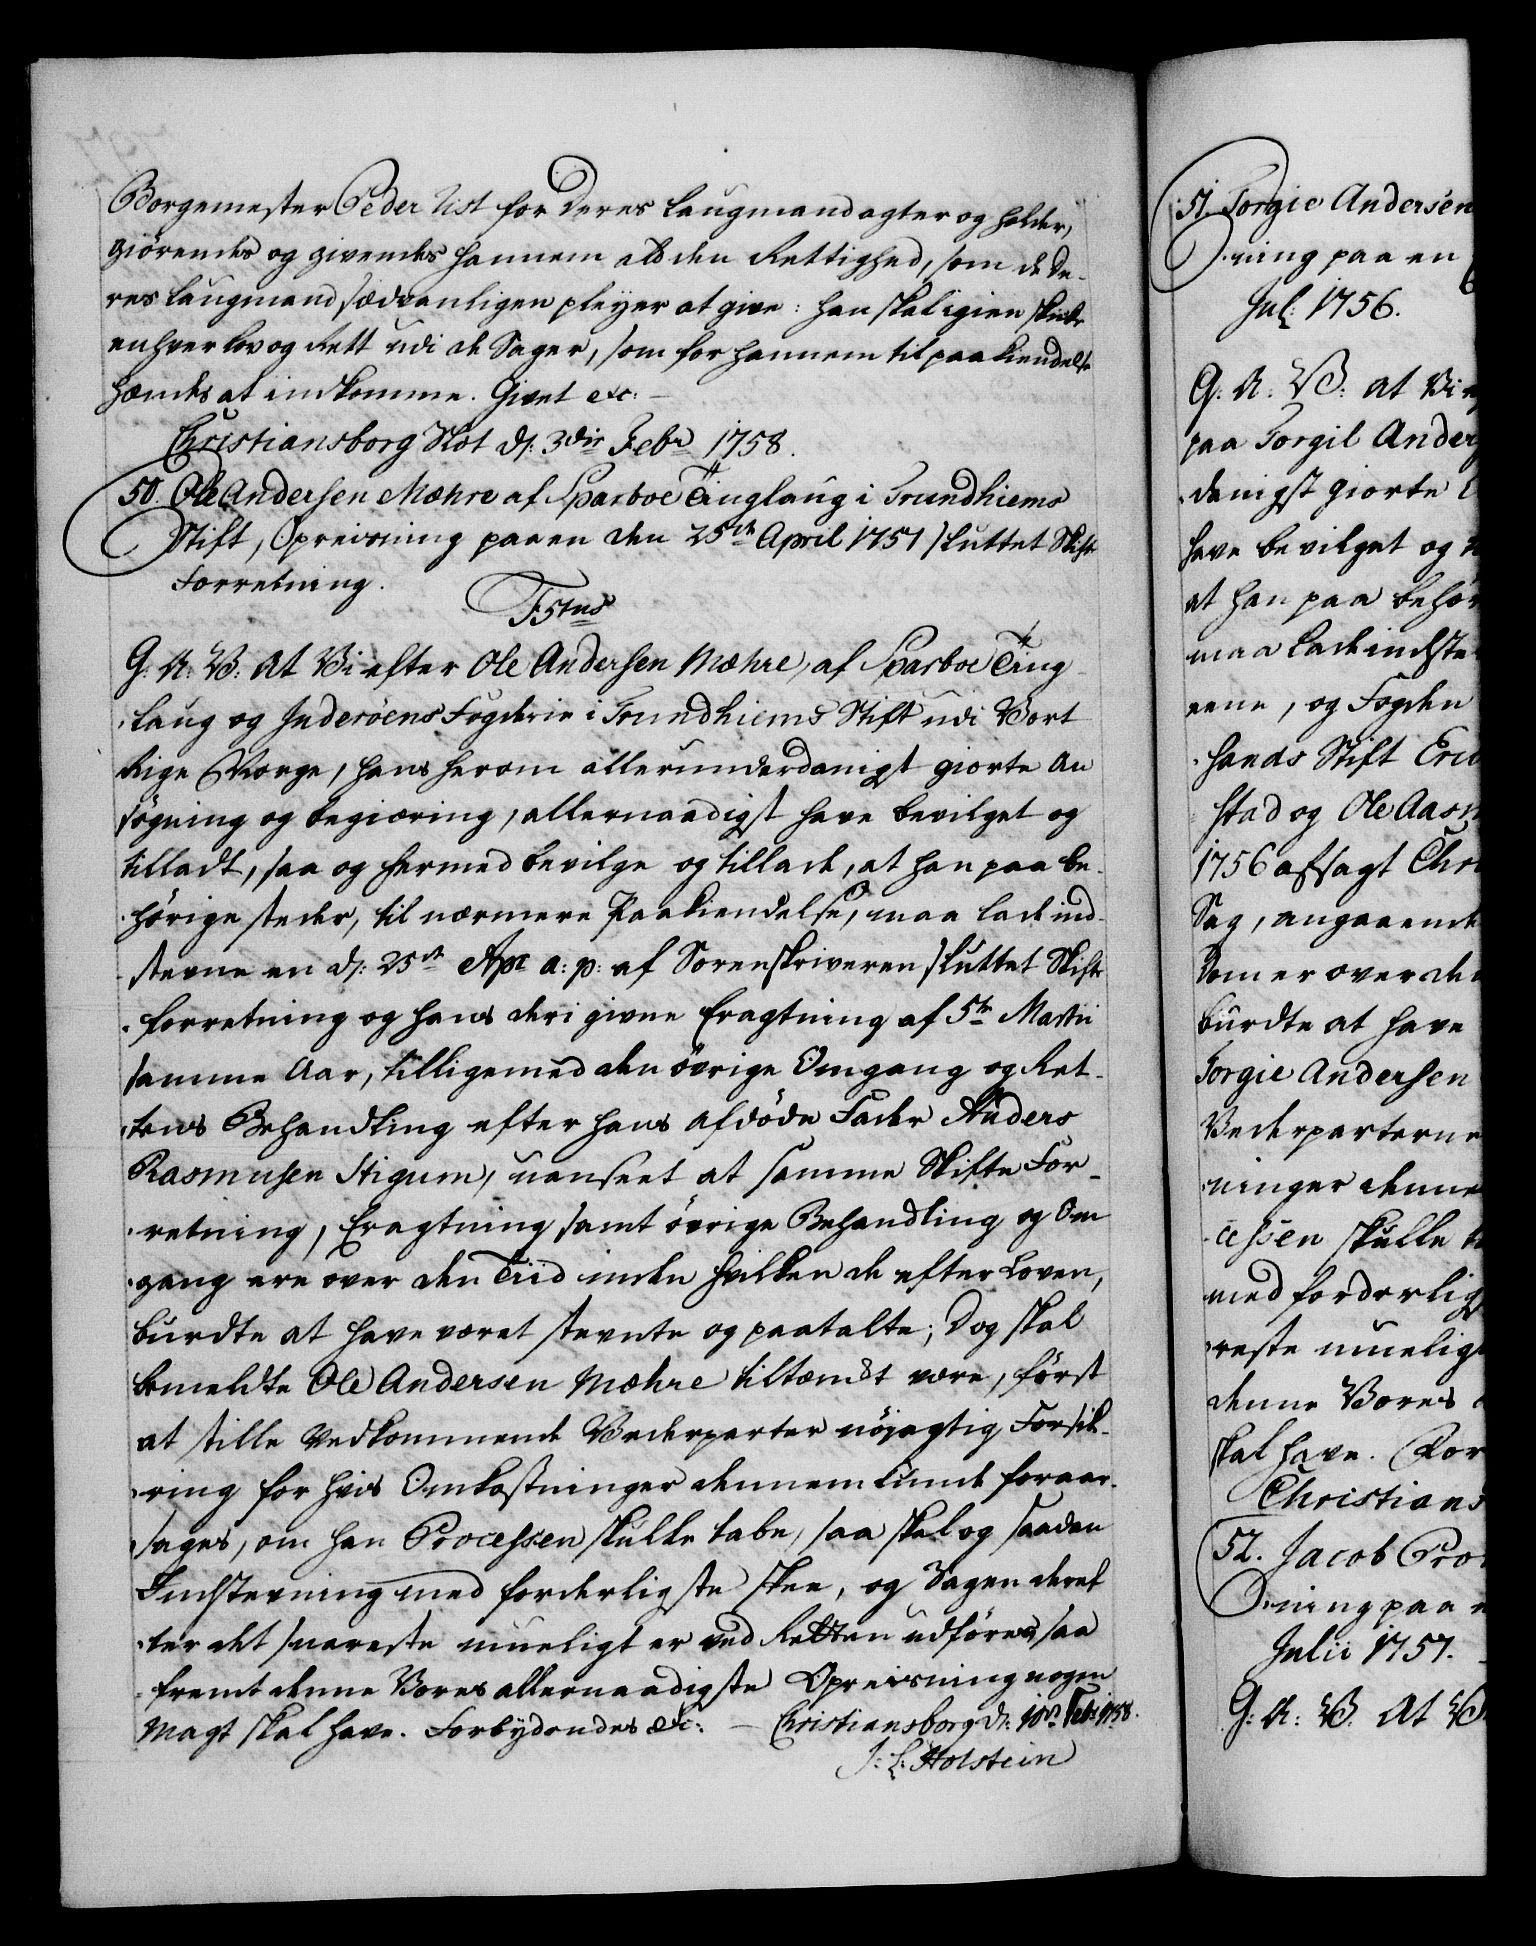 Borgemester Peder Uist for deres Laugmand agter og holder,
giörendes og givendes hannem ald den Rettighed, som de De-
res Laugmand sædvanligen pleÿer at give: han skal igien skicke
enhver Lov og Rett udi de Sager, som for hannem til paakiendelse
hændes at indkomme. Givet etc:
Christiansborg Slot d: 3die Febr 1758.
50. Ole Andersen Mæhre af Sparboe Tinglaug i Trundhiems
Stift, Opreisning paa en den 25de April 1757 sluttet Skifte
Forretning.
G: A: V: At Vi efter Ole Andersen Mæhre, af Sparboe Ting-
laug og Inderöens Fogderie i Trundhiems Stift udi Vort
Rige Norge, hans herom allerunderdanigst giorte An
søgning og begiæring, allernaadigst have bevilget og
tilladt, saa og hermed bevilge og tillade, at han paa be-
hörige steder, til nærmere Paakiendelse, maa lade ind-
stevne en d: 25de Apr a: p: af Sorenskriveren sluttet Skifte
forretning og hans deri givne Eragtning af 5te Martii
samme Aar, tilligemed den övrige Omgang og Ret-
tens Behandling efter hans afdöde Fader Anders
Rasmusen Stigum, uanseet at samme Skifte For-
retning, Eragtning samt övrige Behandling og Om
gang ere over den Tiid inden hvilken de efter Loven,
burdte at have været stevnte og paatalte; Dog skal
bemeldte Ole Andersen Mæhre tiltænckt være, först
at stille Vedkommende Vederparter nöjagtig Forsik-
ring for hvis Omkostninger dennem kunde foraar-
sages, om han Processen skulle tabe, saa skal og saadan
Indstevning med forderligste skee, og Sagen deref
ter det snareste mueligt er ved Retten udföres, saa
fremt denne Vores allernaadigste Opreisning nogen
Magt skal have. Forbÿdendes etc: – Christiansborg d: 10de Febr 1758.
J: L: Holstein
51. Torgie Andersen
ning paa en
Jul: 1756.
G: A: V: At Vi
paa Torgil Ander
danigst giorte
have bevilget og
at han paa behör
maa lade indste
ene, og Fogden
hands Stift
stad og Ole Aasm
1756 afsagt
Sag, angaaende
Dom er over de
burdte at have
Torgie Andersen
Vederparterne
ninger denne
cessen skulle
med forderlig
reste mueligt
denne Vores
skal have. For
Christians
52. Jacob
ning paa
Julii 1757.
G: A: V: At V